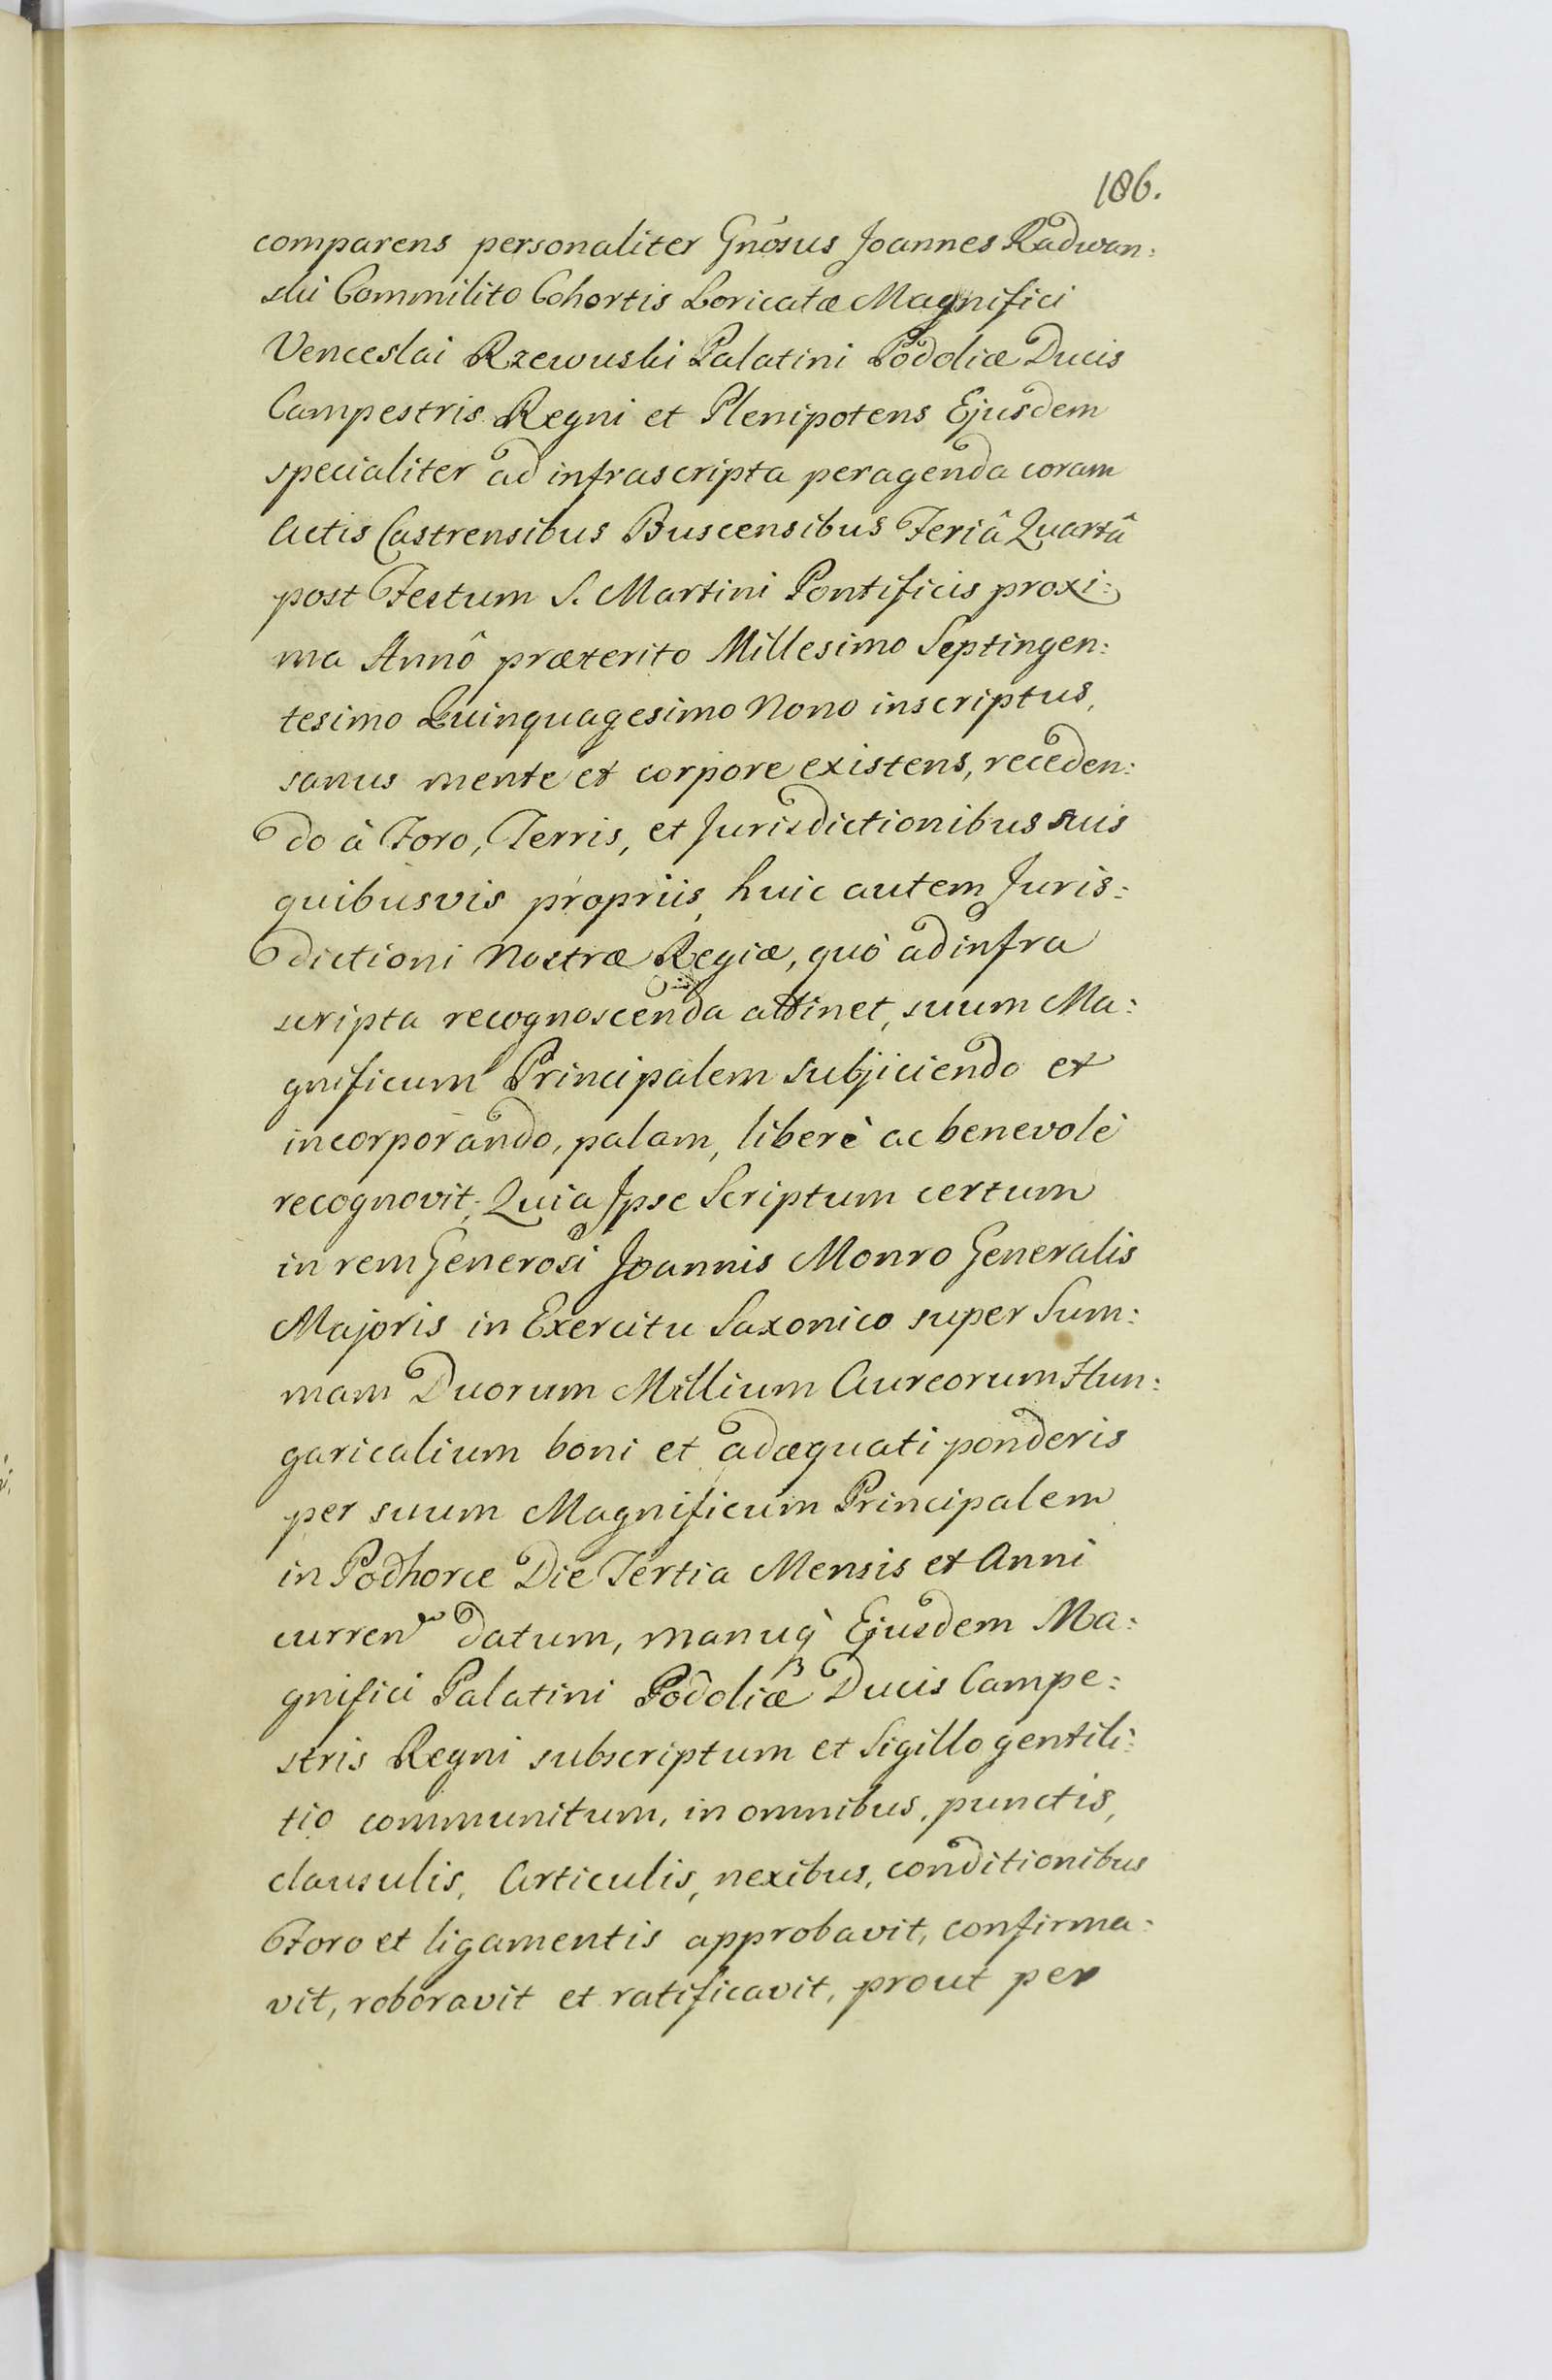 186.
comparens personaliter Gnosus Joannes Radwan:
ski Commilito Cohortis Loricatæ Magnifici
Venceslai Rzewuski Palatini Podoliæ Ducis
Campestris Regni et Plenipotens Ejusdem
specialiter ad infrascripta peragenda coram
Actis Castrensibus Buscensibus Feriâ Quartâ
post Festum S. Martini Pontificis proxi:
ma Annô præterito Millesimo Septingen:
tesimo Quinquagesimo Nono inscriptus,
sanus mente et corpore existens, receden:
do à Foro, Terris, et Jurisdictionibus suis
quibusvis propriis, huic autem Juris:
dictioni Nostræ Regiæ, quò ad infra
scripta recognoscenda attinet, suum Ma:
gnificum Principalem subjiciendo et
incorporando, palam, liberè ac benevolè
recognovit; Quia Ipse Scriptum certum
in rem Generosi Joannis Monro Generalis
Majoris in Exercitu Saxonico super Sum:
mam Duorum Millium Aureorum Hun:
garicalium boni et adæquati ponderis
per suum Magnificum Principalem
in Podhorce Die Tertia Mensis et Anni
curren datum, manuq̀ Ejusdem Ma:
gnifici Palatini Podoliæ Ducis Campe:
stris Regni subscriptum et Sigillo gentili:
tio communitum, in omnibus, punctis,
clausulis, Articulis, nexibus, conditionibus
Foro et ligamentis approbavit, confirma:
vit, roboravit et ratificavit, prout per